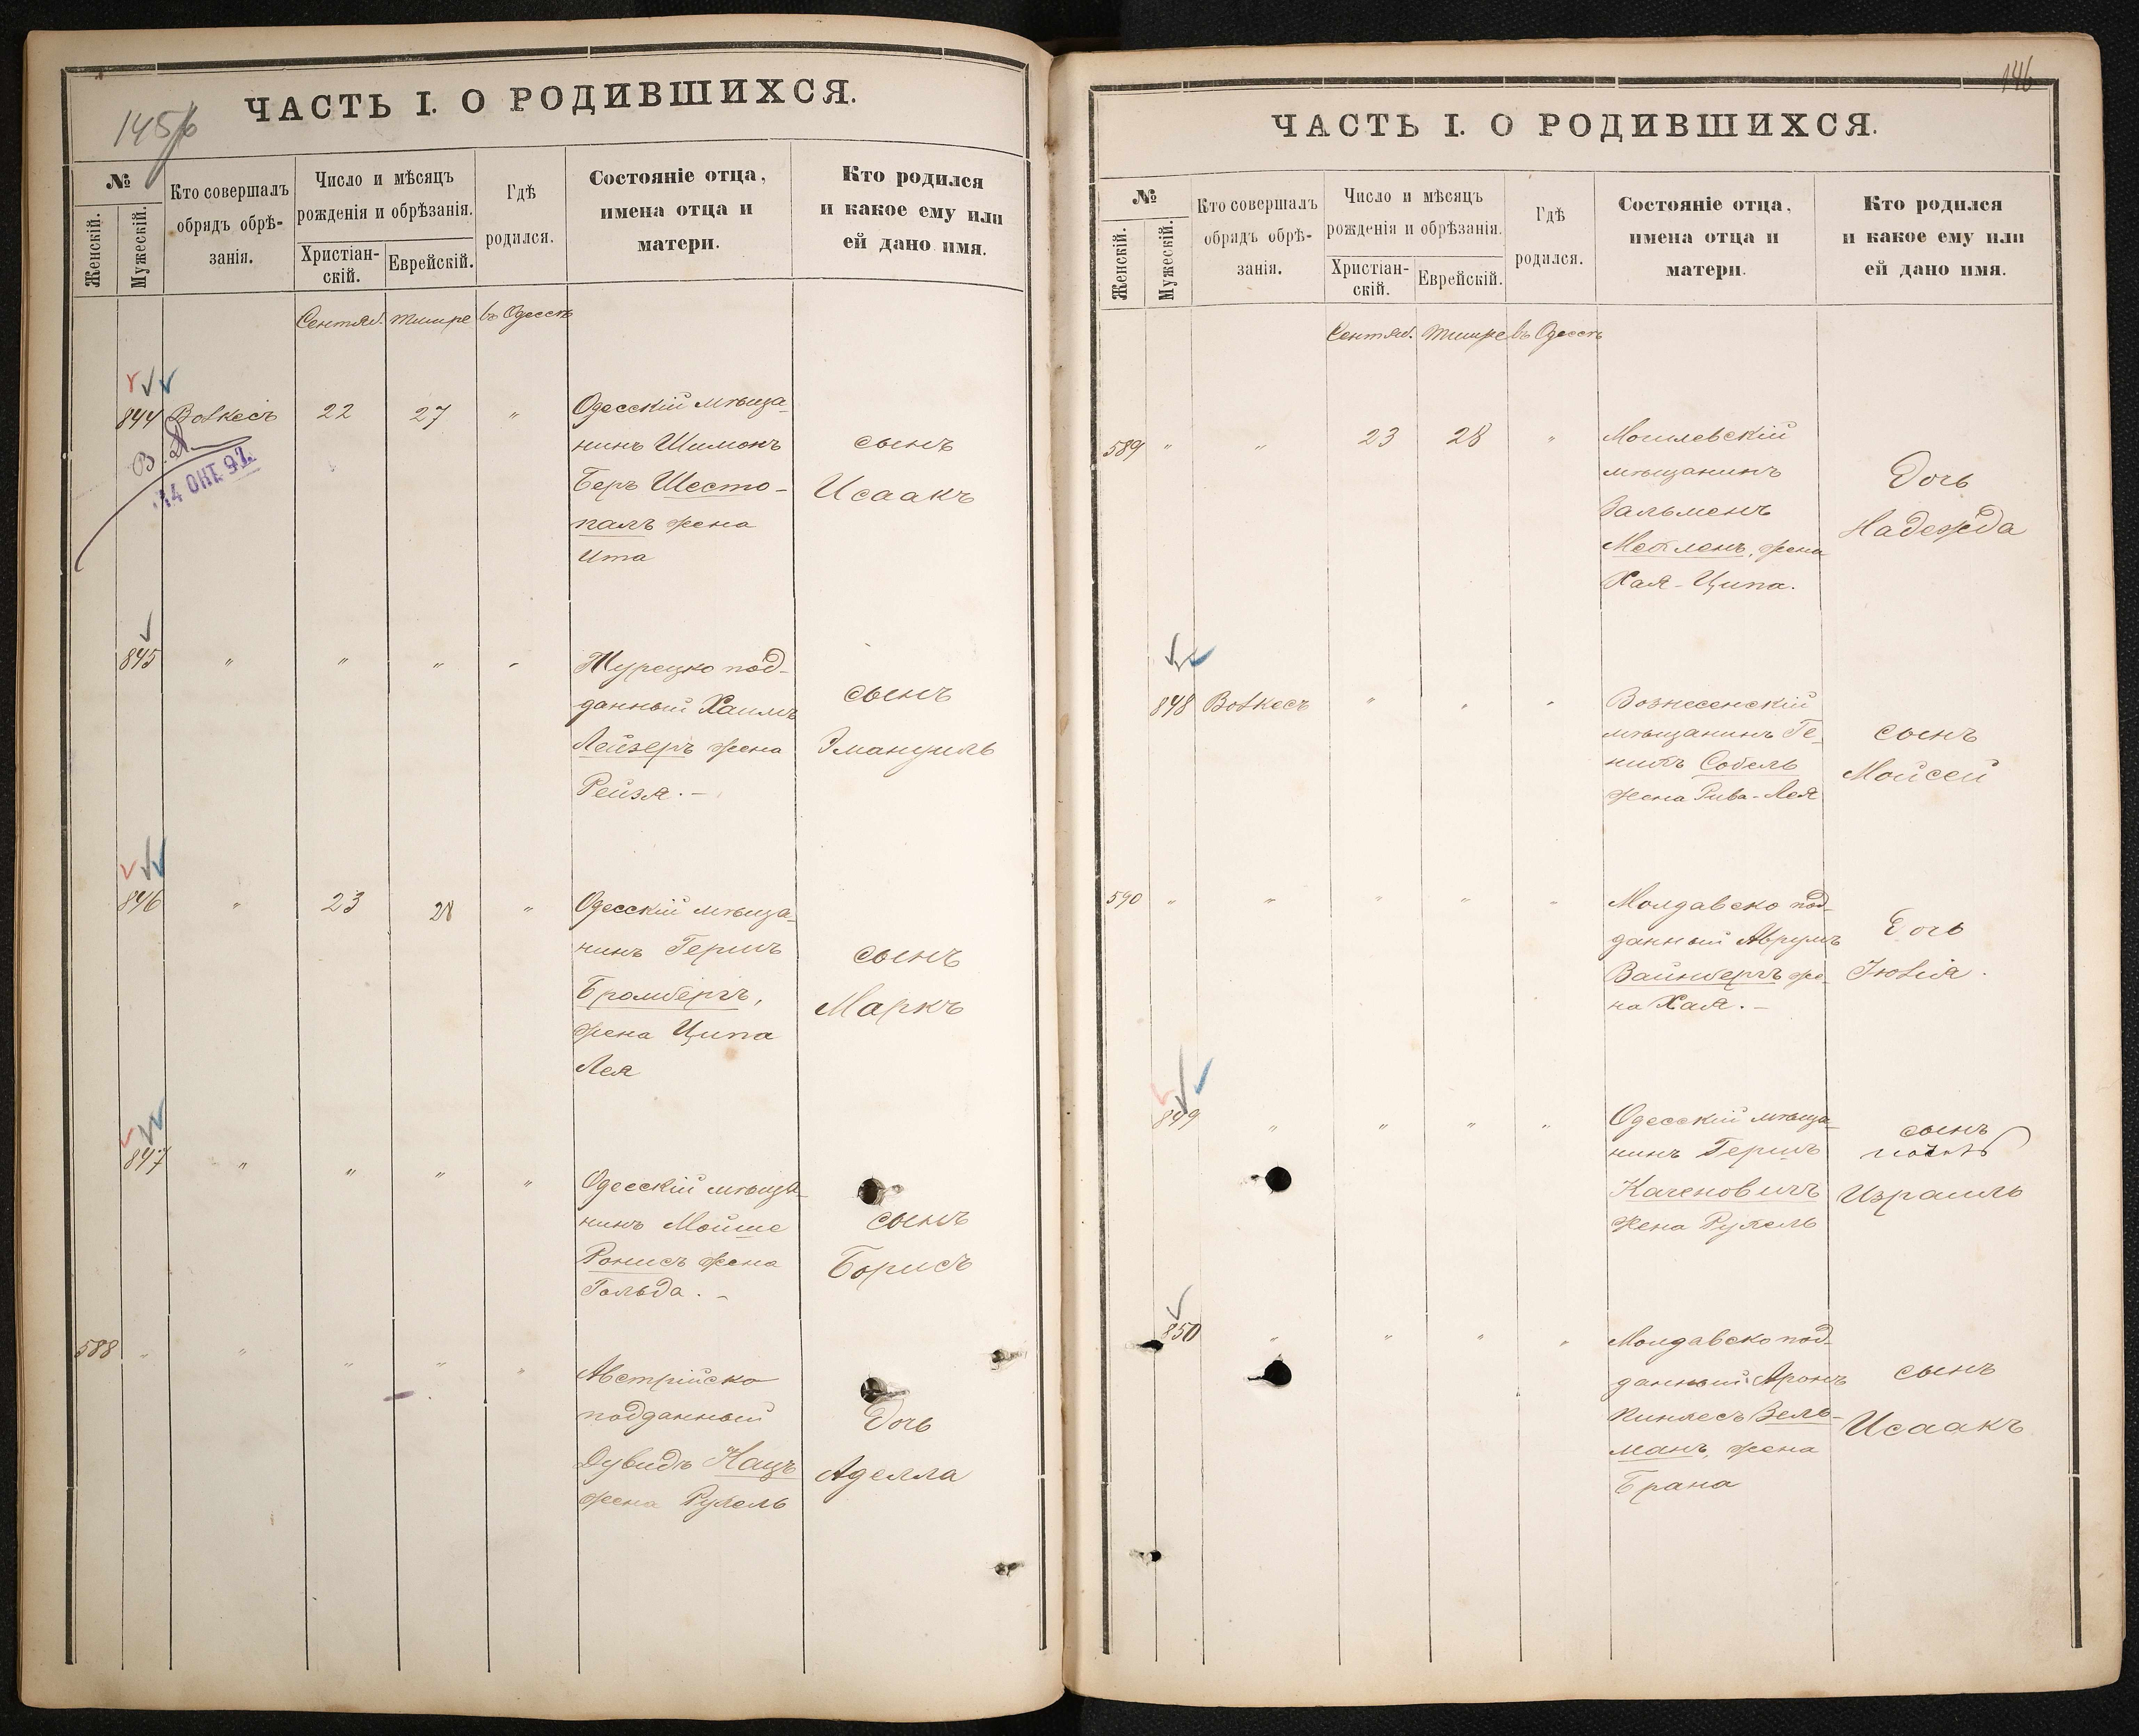 145/б
ЧАСТЬ I. О РОДИВШИХСЯ.
№
Женскій.
Мужескій.
Кто совершалъ
обрядъ обрѣ-
занія.
Число и мѣсяцъ
рожденія и обрѣзанія.
Христіан-
скій.
Еврейскій.
Гдѣ
родился.
Состояніе отца,
имена отца и
матери.
Кто родился
и какое ему или
ей дано имя.
Сентяб. Тишре въ Одессѣ
844 Вовкесъ 22 27 "
Одесскій мѣща-
нинъ Шимонъ
Беръ Шесто-
палъ жена
Ита
сынъ
Исаакъ
14 ОКТ. 97.
845 " " " "
Турецко под-
данный Хаимъ
Лейзеръ жена
Рейзя. -
сынъ
Эмануиль
846 " 23 28 "
Одесскій мѣща-
нинъ Гершъ
Бромбергъ,
жена Ципа
Лея
сынъ
Маркъ
847 " " " "
Одесскій мѣща-
нинъ Мойше
Ронисъ жена
Гольда. -
сынъ
Борисъ
588 " " " " "
Австрійско
подданный
Дувидъ Кацъ
жена Рухель
Дочь
Аделла
146
ЧАСТЬ I. О РОДИВШИХСЯ.
№
Женскій.
Мужескій.
Кто совершалъ
обрядъ обрѣ-
занія.
Число и мѣсяцъ
рожденія и обрѣзанія.
Христіан-
скій.
Еврейскій.
Гдѣ
родился.
Состояніе отца,
имена отца и
матери.
Кто родился
и какое ему или
ей дано имя.
Сентяб. Тишре въ Одессѣ
589 " " 23 28 "
Могилевскій
мѣщанинъ
Зальменъ
жена
Хая-Ципа.
Дочь
Надежда
848 Вовкесъ " " "
Вознесенскій
мѣщанинъ Ге-
Собель
жена Рива-Лея
сынъ
Мойсей
590 " " " " "
Молдавско под-
данный Аврумъ
Вайнбергъ же-
на Хая. -
Дочь
849 " " " "
Одесскій мѣща-
нинъ Гершъ
Каченовичъ
жена Рухель
сынъ
Израиль
850 " " " "
Молдавско под-
данный Аронъ
Пинхесъ Зель-
манъ, жена
Брана
сынъ
Исаакъ